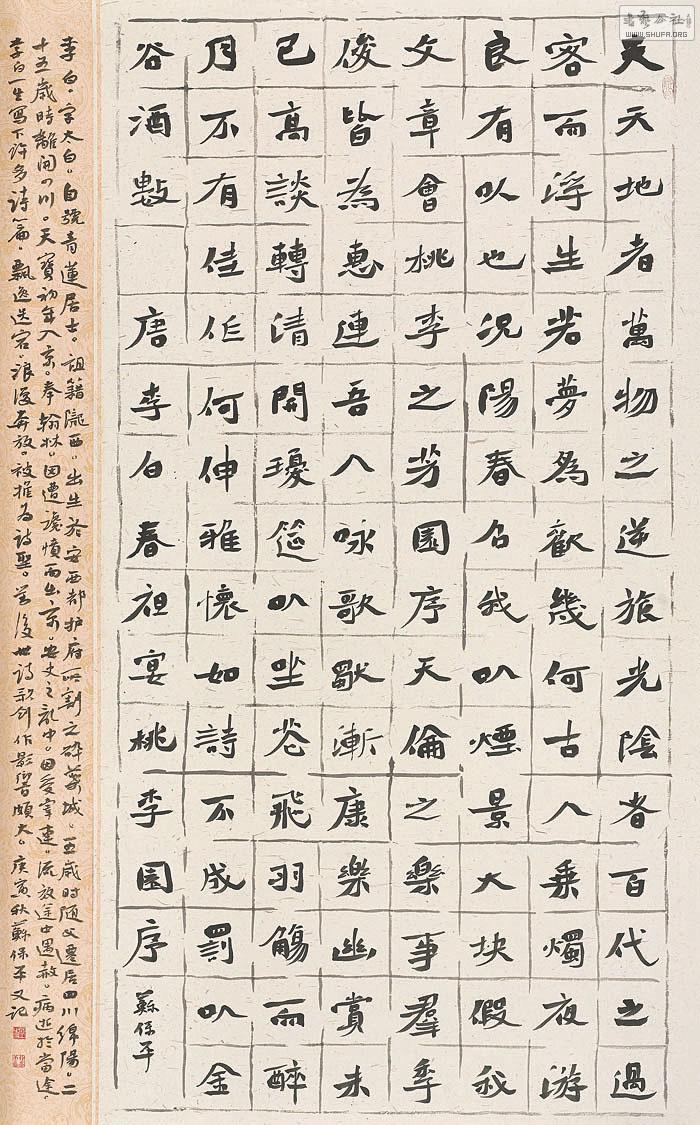 夫天地者萬物之逆旅光陰者百代之過
客而浮生若夢為歡幾何古人秉燭夜游
良有以也况陽春召我以煙景大块假我
文章會桃李之芳園序天倫之樂事羣季
俊皆為惠連吾人咏歌慚康樂幽賞未
已高談轉清開瓊筵以坐花飛羽觴而醉
月不有佳作何伸雅懷如詩不成罰以金
谷酒數 唐李白春宴桃李園序 蘇保平
李白。字太白。自號青蓮居士。祖籍隴西。出生於安西都护府所割之碎葉城。五歲時随父遷居四川绵陽。二
十五歲時離開四川。天寶初年入京。奉翰林。因遭讒憤而出京。安史之亂中。因受牽連。流放途中遇赦。病逝於當途。
李白一生寫下許多詩篇。飄逸迭宕。浪漫奔放。被推為詩聖。对後世詩歌創作影響頗大。庚寅秋蘇保平又記
WWW.SHUFA.ORG